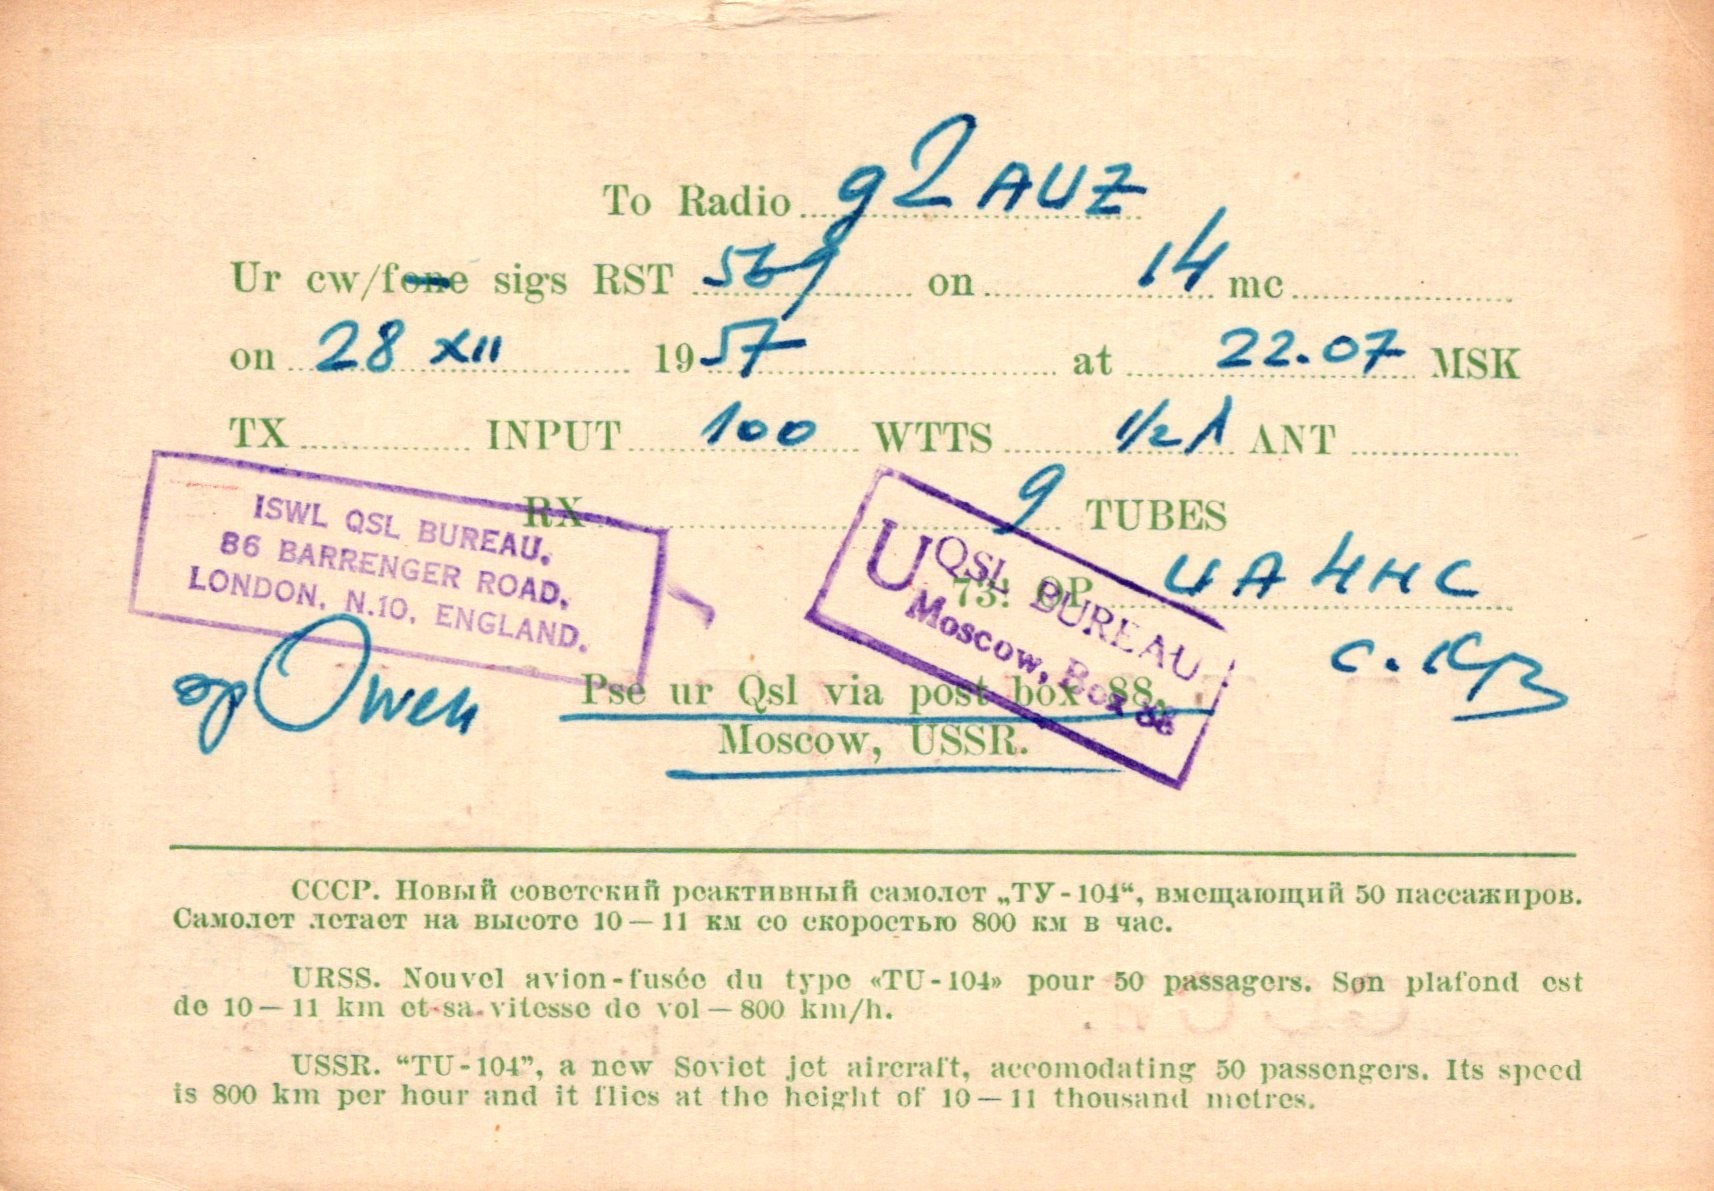 To Radio g2AUZ
Ur cw/fone sigs RST 569 on 14 mc
on 28 XII 1957 at 22.07 MSK
TX INPUT 100 WTTS 1/2 λ ANT
RX 9 TUBES
ISWL QSL BUREAU.
86 BARRENGER ROAD.
LONDON. N.10. ENGLAND.
U QSL BUREAU
Moscow, Box 88
73! OP UA4HC
op Owen
Pse ur Qsl via post box 88,
Moscow, USSR.
СССР. Новый советский реактивный самолет „ТУ-104“, вмещающий 50 пассажиров.
Самолет летает на высоте 10—11 км со скоростью 800 км в час.
URSS. Nouvel avion-fusée du type «TU-104» pour 50 passagers. Son plafond est
de 10—11 km et sa vitesse de vol—800 km/h.
USSR. “TU-104”, a new Soviet jet aircraft, accomodating 50 passengers. Its speed
is 800 km per hour and it flies at the height of 10—11 thousand metres.